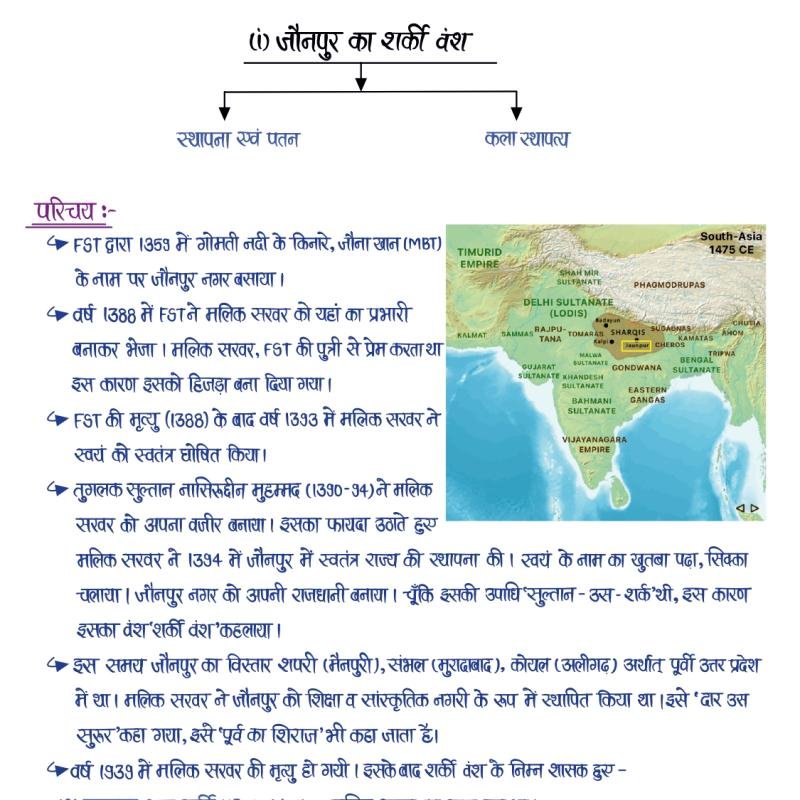 (i) जौनपुर का शर्की वंश
स्थापना एवं पतन
कला स्थापत्य
परिचय :-
↪ FST द्वारा 1359 में गोमती नदी के किनारे, जौना खान (MBT)
के नाम पर जौनपुर नगर बसाया।
↪ वर्ष 1388 में FST ने मलिक सरवर को यहां का प्रभारी
बनाकर भेजा। मलिक सरवर, FST की पुत्री से प्रेम करता था
इस कारण इसको हिजड़ा बना दिया गया।
↪ FST की मृत्यु (1388) के बाद वर्ष 1393 में मलिक सरवर ने
स्वयं को स्वतंत्र घोषित किया।
↪ तुगलक सुल्तान नासिरुद्दीन मुहम्मद (1390-94) ने मलिक
सरवर को अपना वजीर बनाया। इसका फायदा उठाते हुए
मलिक सरवर ने 1394 में जौनपुर में स्वतंत्र राज्य की स्थापना की। स्वयं के नाम का खुतबा पढ़ा, सिक्का
चलाया। जौनपुर नगर को अपनी राजधानी बनाया। चूँकि इसकी उपाधि 'सुल्तान-उस-शर्क' थी, इस कारण
इसका वंश 'शर्की वंश' कहलाया।
↪ इस समय जौनपुर का विस्तार शपरी (मैनपुरी), संभल (मुरादाबाद), कोयल (अलीगढ़) अर्थात् पूर्वी उत्तर प्रदेश
में था। मलिक सरवर ने जौनपुर को शिक्षा व सांस्कृतिक नगरी के रूप में स्थापित किया था। इसे 'दार उस
सुरूर' कहा गया, इसे 'पूर्व का शिराज' भी कहा जाता है।
↪ वर्ष 1939 में मलिक सरवर की मृत्यु हो गयी। इसके बाद शर्की वंश के निम्न शासक हुए -
South-Asia
1475 CE
TIMURID
EMPIRE
SHAH MIR
SULTANATE
PHAGMODRUPAS
DELHI SULTANATE
(LODIS)
Badayun
KALMAT
SAMMAS
RAJPU-
TANA
TOMARAS
Kalpi
SHARQIS
Jaunpur
SUGAUNAS
CHEROS
KAMATAS
CHUTIA
AHOM
TRIPWA
MALWA
SULTANATE
GUJARAT
SULTANATE
KHANDESH
SULTANATE
GONDWANA
BENGAL
SULTANATE
EASTERN
GANGAS
BAHMANI
SULTANATE
VIJAYANAGARA
EMPIRE